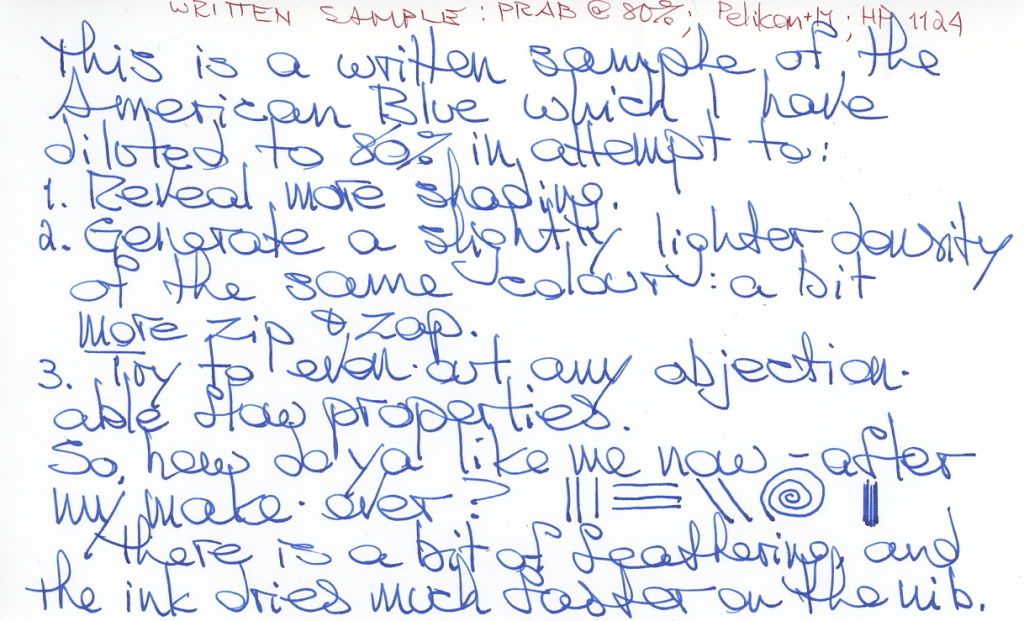 WRITTEN SAMPLE : PRAB @ 80%; Pelikan+M; HP 1124
This is a written sample of the
American Blue which I have
diluted to 80% in attempt to:
1. Reveal more shading.
2. Generate a slightly lighter density
of the same colour : a bit
more zip & zap.
3. Try to even-out any objection-
able flow properties.
So, how do ya like me now - after
my make-over?
There is a bit of feathering, and
the ink dries much faster on the nib.